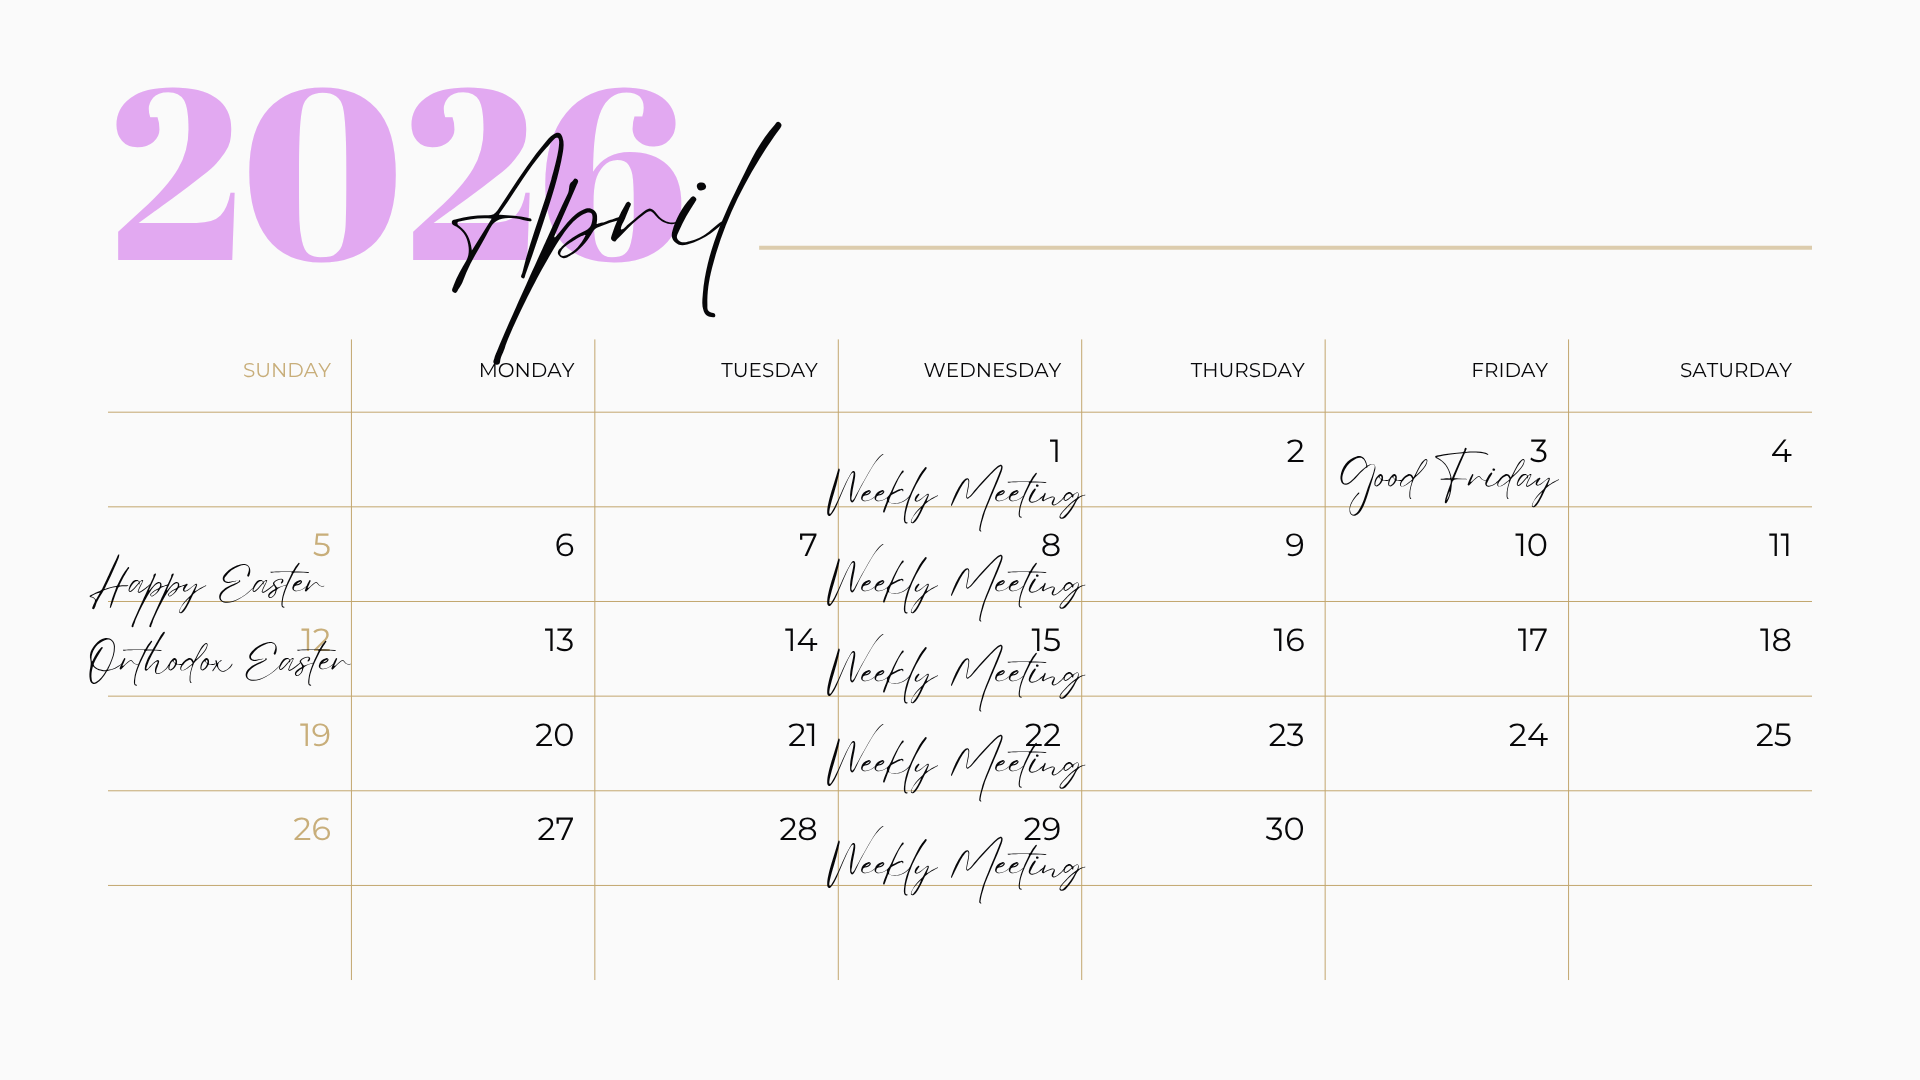 2026
April
SUNDAY MONDAY TUESDAY WEDNESDAY THURSDAY FRIDAY SATURDAY
1 2 3 4
Weekly Meeting Good Friday
5 6 7 8 9 10 11
Happy Easter Weekly Meeting
12 13 14 15 16 17 18
Orthodox Easter Weekly Meeting
19 20 21 22 23 24 25
Weekly Meeting
26 27 28 29 30
Weekly Meeting